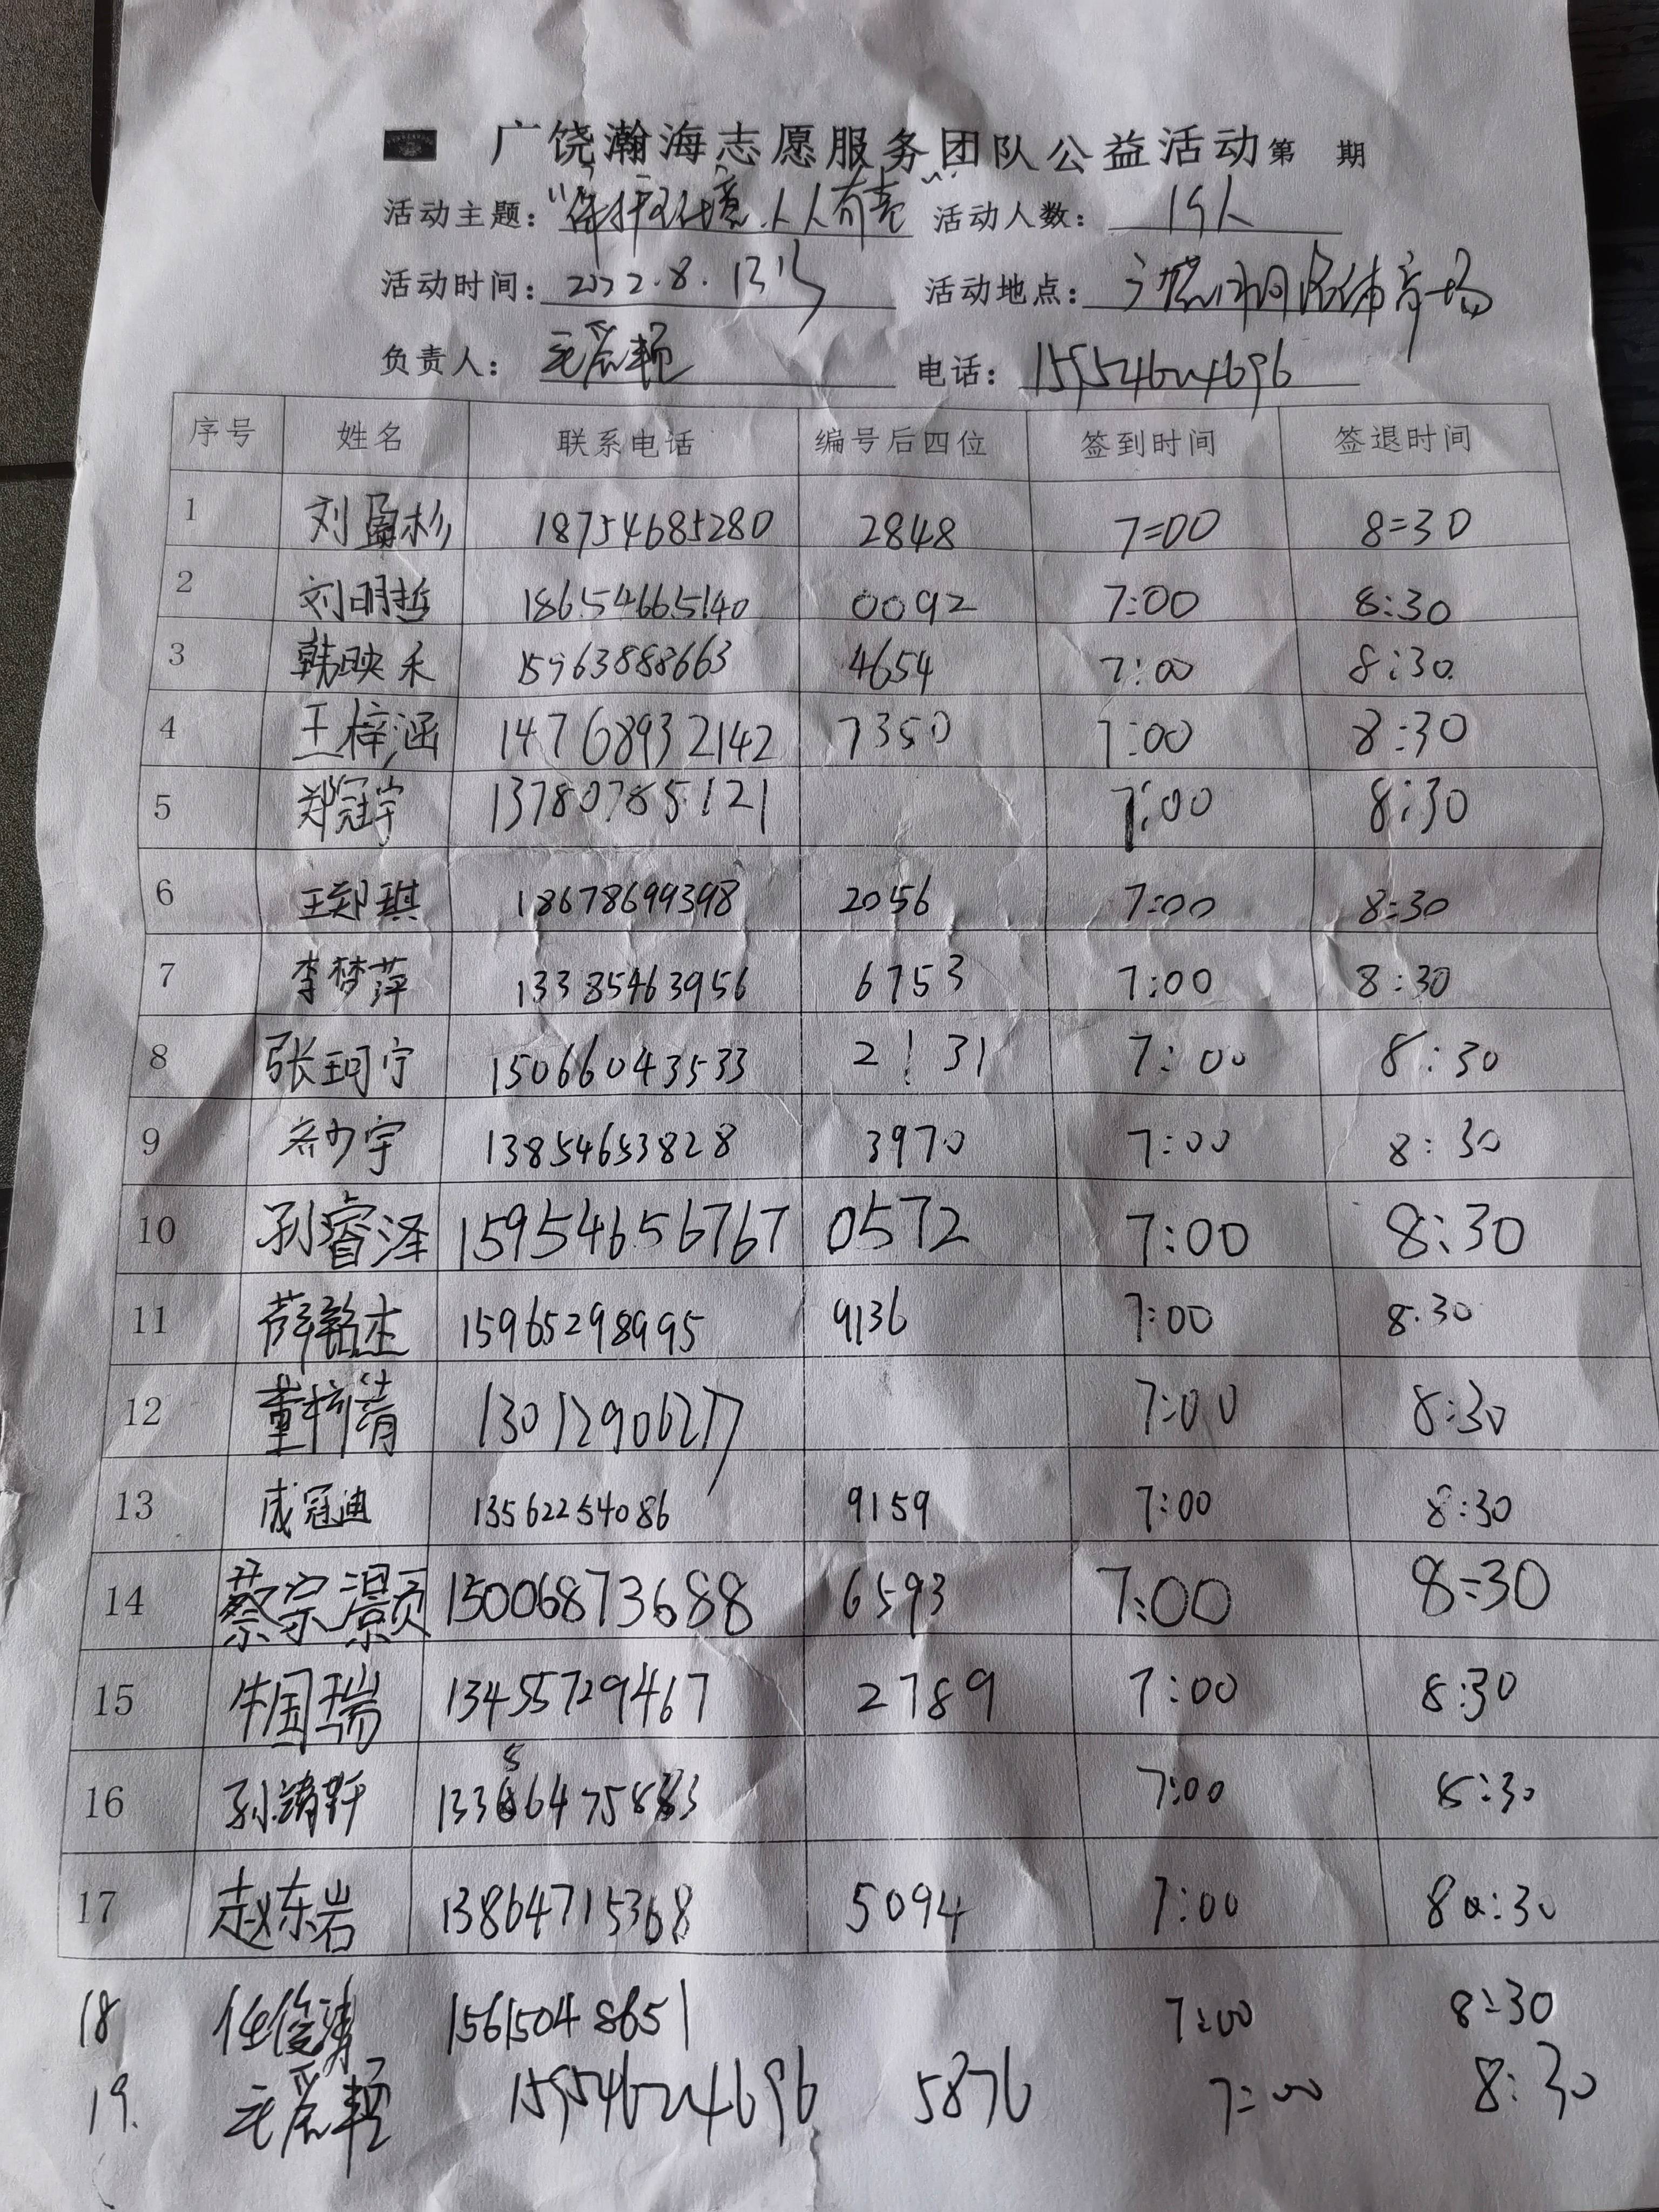 广饶瀚海志愿服务团队公益活动第 期
活动主题：“保护环境，人人有责” 活动人数：19人
活动时间：2022.8.13号 活动地点：体育场
负责人： 电话：15954624696
序号 姓名 联系电话 编号后四位 签到时间 签退时间
1 刘盈杉 18754685280 2848 7=00 8=30
2 刘明哲 18654665140 0092 7:00 8:30
3 韩映禾 15963888663 4654 7:00 8:30
4 王梓涵 14768932142 7350 7:00 8:30
5 郑冠宇 13780785121 7:00 8:30
6 王郑琪 18678699398 2056 7:00 8:30
7 李梦萍 13385463956 6753 7:00 8:30
8 张珂宁 15066043533 2131 7:00 8:30
9 少宇 13854653828 3970 7:00 8:30
10 孙睿泽 15954656767 0572 7:00 8:30
11 薛铭杰 15965298995 9136 7:00 8:30
12 董梓清 13012906277 7:00 8:30
13 成冠迪 13562254086 9159 7:00 8:30
14 蔡宗灏 15006873688 6593 7:00 8=30
15 牛国瑞 13455729467 2789 7:00 8:30
16 孙靖轩 7:00 8:30
17 赵东岩 13864715368 5094 7:00 8:30
18 任俊涛 15615048651 7:00 8:30
19. 15954624696 5876 7:00 8:30